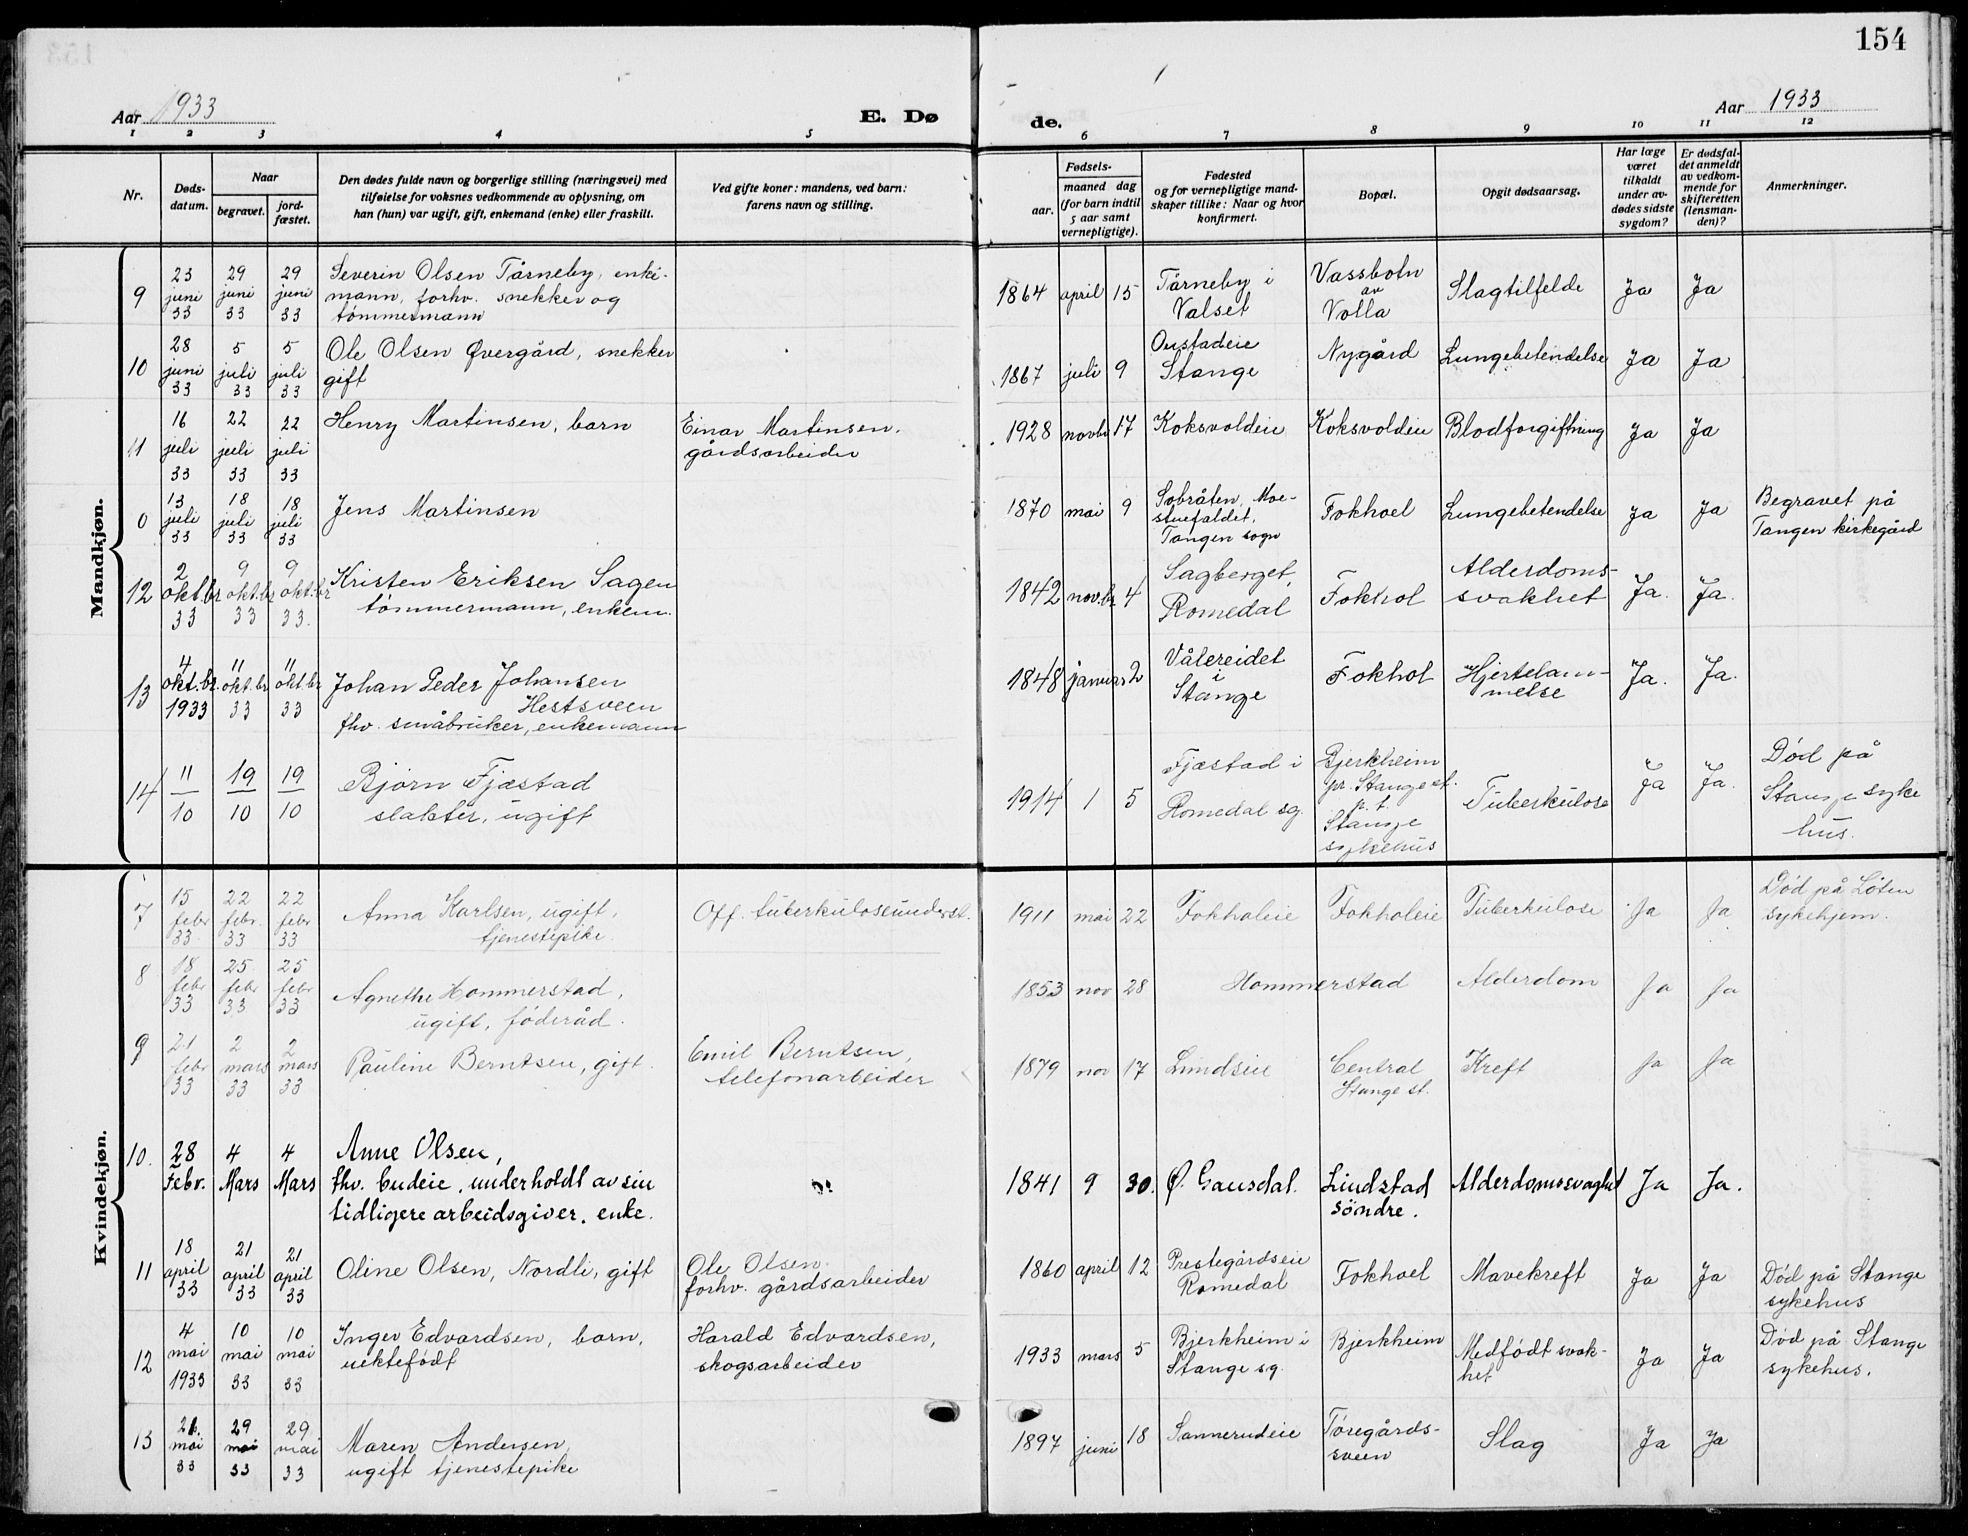 154
Aar 1933
E. Dø
de.
Aar 1933
1 2 3 4 5 6 7 8 9 10 11 12
Nr.
Døds-
datum.
Naar
begravet.
jord-
fæstet.
Den dødes fulde navn og borgerlige stilling (næringsvei) med
tilføielse for voksnes vedkommende av oplysning, om
han (hun) var ugift, gift, enkemand (enke) eller fraskilt.
Ved gifte koner: mandens, ved barn:
farens navn og stilling.
Fødsels-
aar.
maaned dag
(for barn indtil
5 aar samt
vernepligtige).
Fødested
og for vernepligtige mand-
skaper tillike: Naar og hvor
konfirmert.
Bopæl.
Opgit dødsaarsag.
Har læge
været
tilkaldt
under av-
dødes sidste
sygdom?
Er dødsfal-
det anmeldt
av vedkom-
mende for
skifteretten
(lensman-
den)?
Anmerkninger.
Mandkjøn.
9
23 juni 33
29 juni 33
29 juni 33
Severin Olsen Tårneby, enke-
mann, forhv. snekker og
tømmermann
1864 april 15
Tårneby i
Valset
Vassbotn
av
Volla
Slagtilfelde
Ja Ja
10
28 juni 33
5 juli 33
5 juli 33
Ole Olsen Øvergård, snekker
gift
1867 juli 9
Oustadeie
Stange
Nygård
Lungebetendelse
Ja Ja
11
16 juli 33
22 juli 33
22 juli 33
Henry Martinsen, barn
Einar Martinsen.
gårdsarbeider
1928 novbr 17
Koksvoldeie
Koksvoldeie
Blodforgiftning
Ja Ja
0
13 juli 33
18 juli 33
18 juli 33
Jens Martinsen
1870 mai 9
Sobråten, Moe-
stuefaldet.
Tangen sogn
Fokhoel
Lungebetendelse
Ja Ja
Begravet på
Tangen kirkegård
12
2 okt.br 33
9 okt.br 33
9 okt.br 33.
Kristen Eriksen Sagen
tømmermann, enkem.
1842 nov.br 4
Sagberget,
Romedal
Fokhol
Alderdoms-
svakhet
Ja. Ja.
13
4 okt.br. 1933
11 okt.br 33
11 okt.br 33
Johan Peder Johansen
Hestsveen
fhv. småbruker, enkemann
1848 januar 2
Vålereidet
i
Stange
Fokhol
Hjertelam-
melse
Ja. Ja.
14
11/10
19/10
19/10
Bjørn Fjæstad
slakter, ugift
1914 1 5
Fjæstad i
Romedal sg.
Bjerkheim
pr. Stange st.
p.t.
Stange
sykehus
Tuberkulose
Ja Ja.
Død på
Stange syke
hus.
Kvindekjøn.
7
15 febr 33.
22 febr. 33
22 febr 33
Anna Karlsen, ugift,
tjenestepike.
Off. tuberkuloseunderst.
1911 mai 22
Fokholeie
Fokholeie
Tuberkulose
Ja Ja
Død på Løten
sykehjem.
8
18 febr 33
25 febr 33
25 febr 33
Agnethe Hommerstad,
ugift, føderåd.
1853 nov 28
Hommerstad
Alderdom
Ja Ja
9
21 febr 33
2 mars 33
2 mars 33
Pauline Berntsen, gift.
Emil Berntsen,
telefonarbeider
1879 nov 17
Lundseie
Central
Stange st.
Kreft
Ja Ja
10.
28 Febr.
4 Mars
4 Mars
Anne Olsen,
fhv. budeie, underholdt av sin
tidligere arbeidsgiver, enke.
1841 9 30.
Ø. Gausdal.
Lindstad
söndre.
Alderdomssvaghet
Ja Ja.
11
18 april 33
21 april 33
21 april 33
Oline Olsen, Nordli, gift
Ole Olsen.
forhv. gårdsarbeider
1860 april 12
Prestegårdseie
Romedal
Fokhoel
Mavekreft
Ja Ja
Død på Stange
sykehus
12
4 mai 1933
10 mai 33
10 mai 33
Inger Edvardsen, barn,
uektefødt
Harald Edvardsen,
skogsarbeider
1933 mars 5
Bjerkheim i
Stange sg.
Bjerkheim
Medfødt svak-
het
Ja Ja
Død på Stange
sykehus.
13
26. mai 33
29 mai 33
29 mai 33
Maren Andersen,
ugift tjenestepike
1897 juni 18
Sannerudeie
Tøregårds-
sveen
Slag
Ja Ja